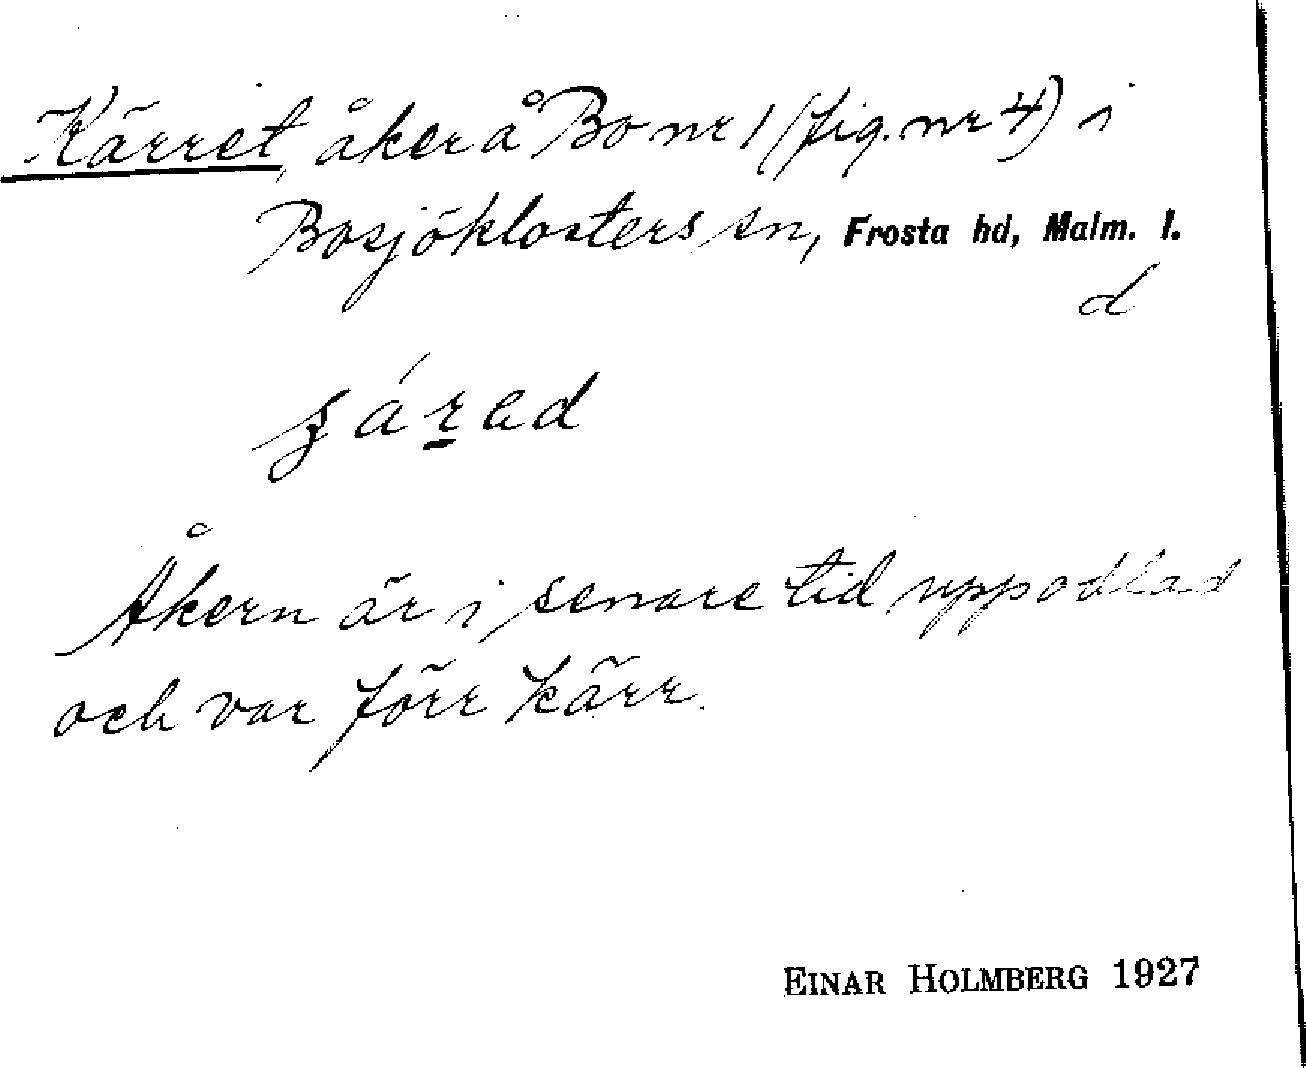 Kärret, åker å Bo nr 1 (fig. nr 4) i
Bosjöklosters sn, Frosta hd, Malm. l.
d
Åkern är i senare tid uppodlad
och var förr kärr.
EINAR HOLMBERG 1927